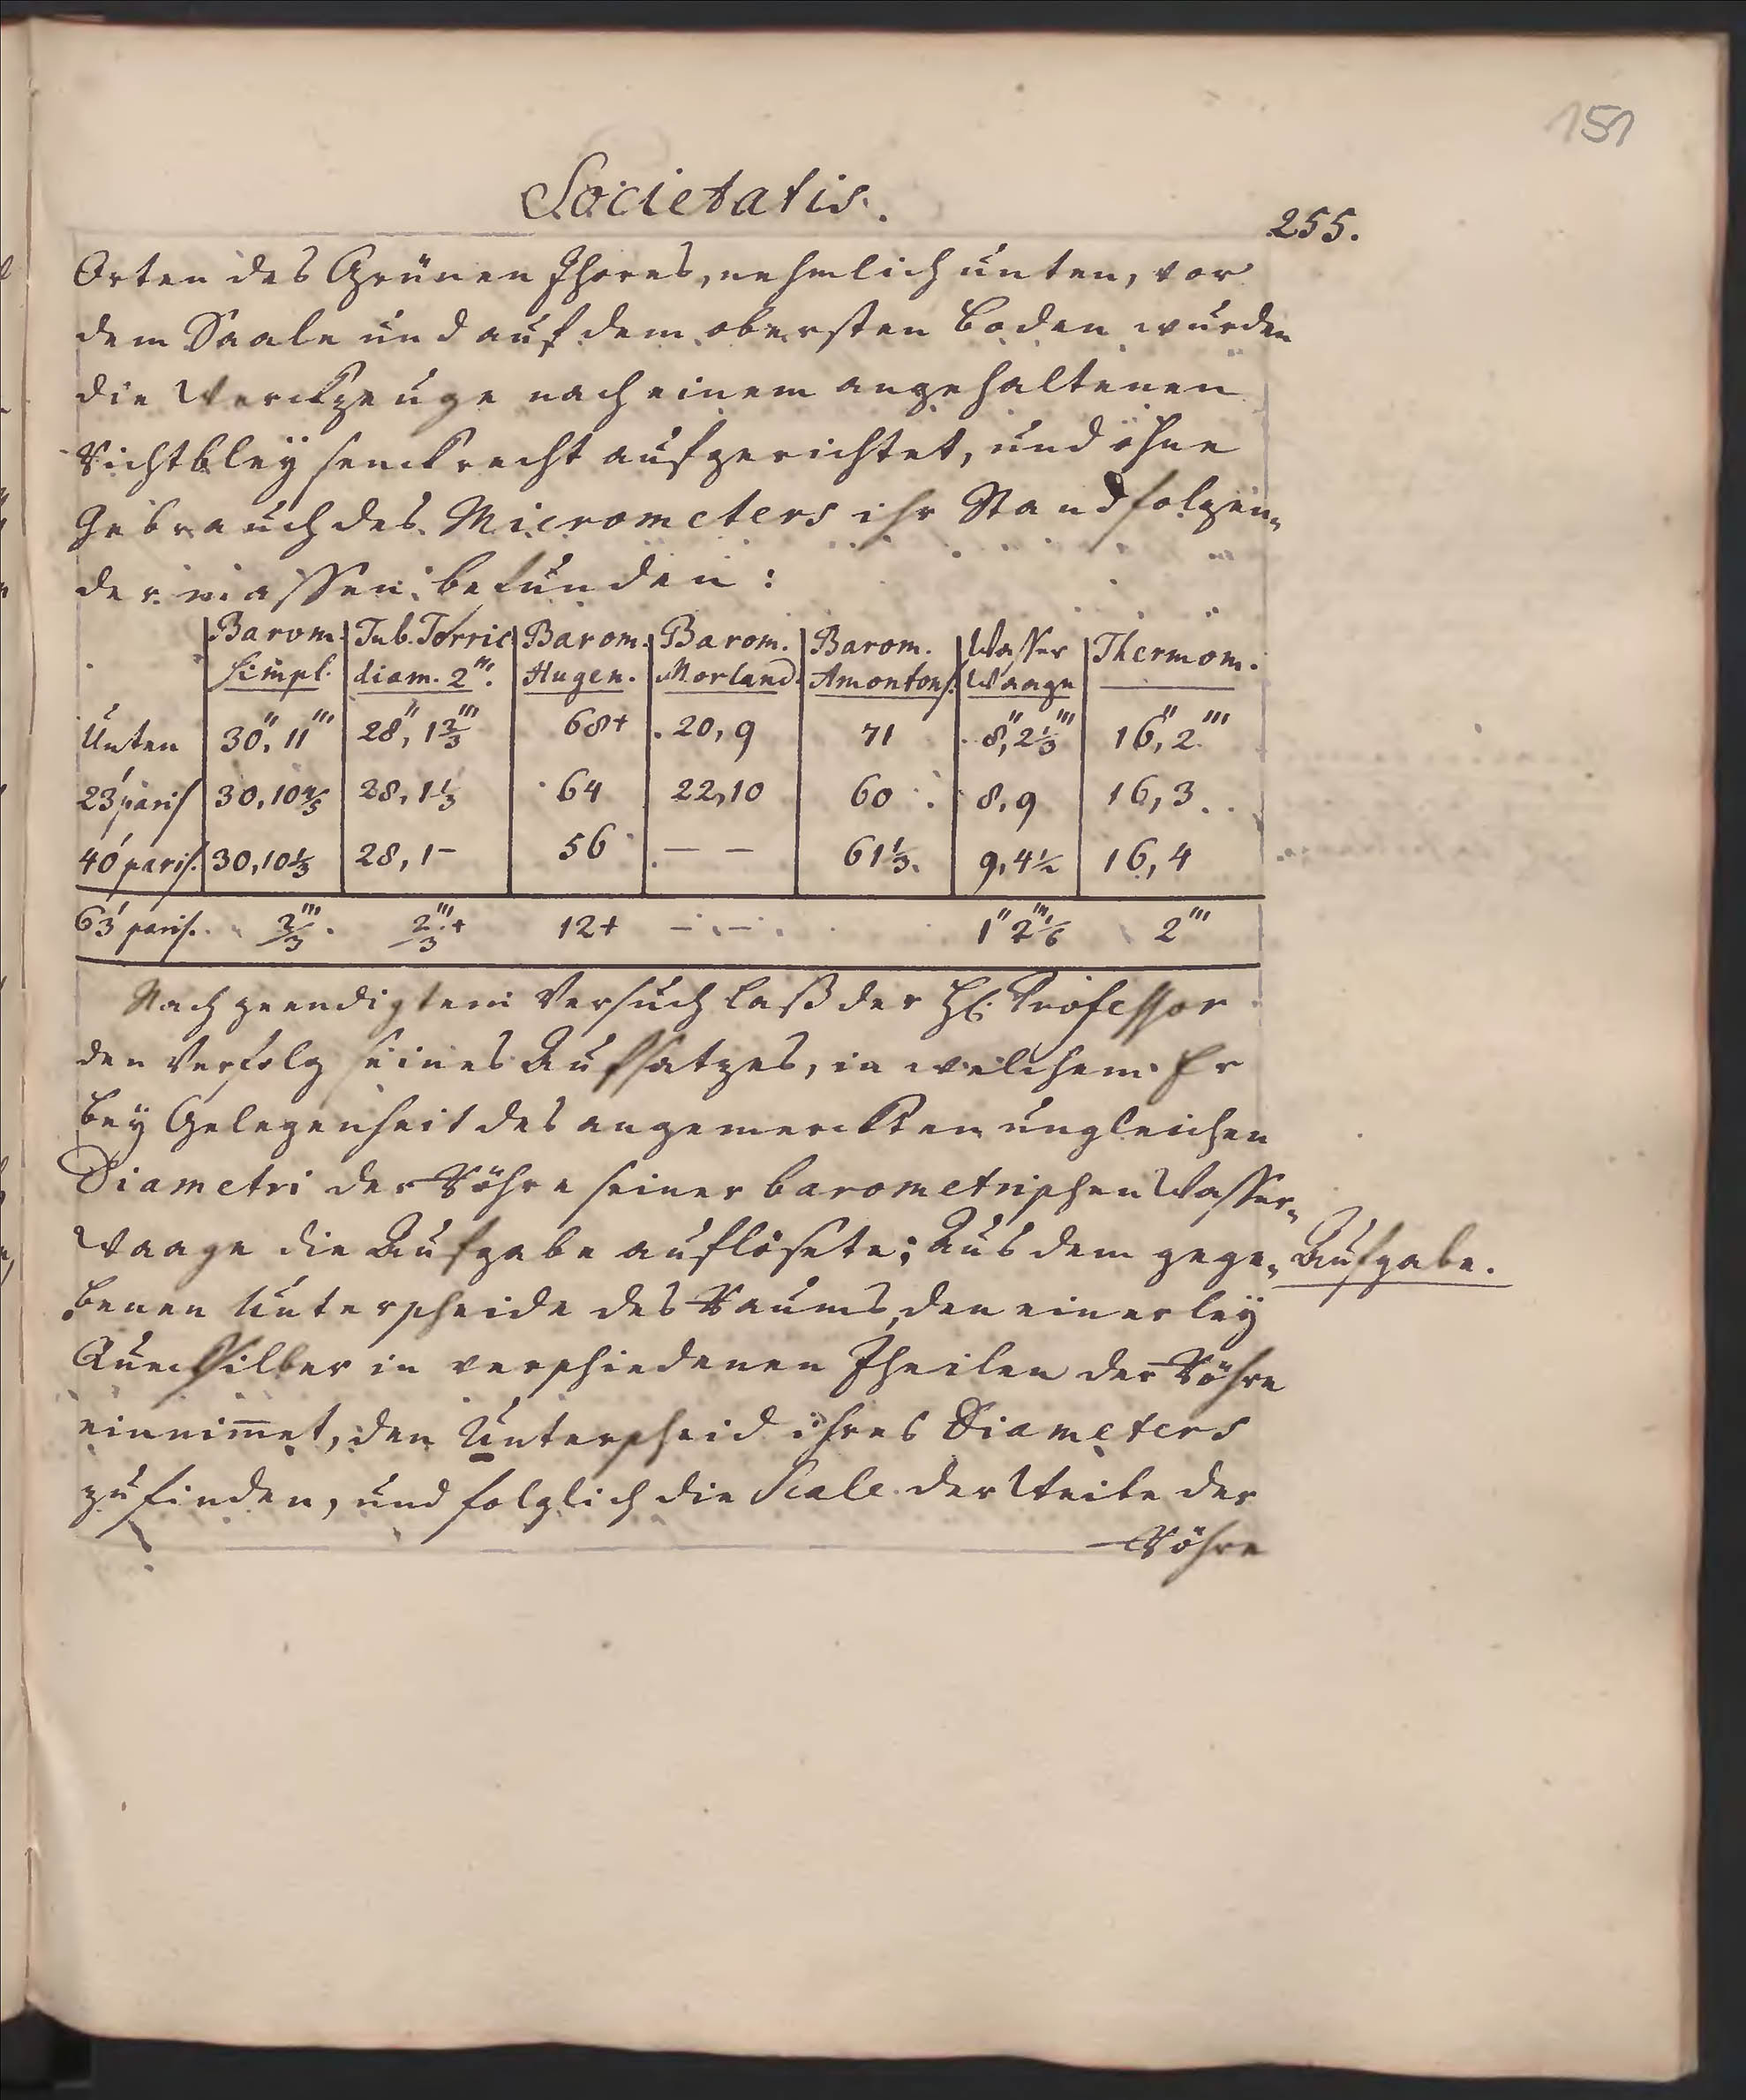 151
Societatis.
255.
Orten des Grünen Thores, nehmlich unten, vor
dem Saale und auf dem obersten Boden wurden
die Werckzeuge nach einem angehaltenen
Richtbley senckrecht aufgerichtet, und ohne
Gebrauch des Micrometers ihr Stand folgen„
der massen befunden:
Barom. | Tub. Torric | Barom. | Barom. | Barom. | Wasser | Thermom.
simpl. | diam. 2‴. | Hugen. | Morland. | Amontons. | Waage
Unten | 30″, 11‴ | 28″, 1⅔‴ | 68+ | 20, 9 | 71 | 8″, 2⅓‴ | 16″, 2‴
23′ paris | 30, 10⅘ | 28, 1⅓ | 64 | 22, 10 | 60 | 8, 9 | 16, 3
40′ paris. | 30, 10⅓ | 28, 1– | 56 | — — | 61⅓. | 9, 4½ | 16, 4
63′ paris. ⅔‴ ⅔‴+ 12+ — — 1″ 2⅙‴ 2‴
Nach geendigtem Versuch laß der H. Professor
den Verfolg seines Aufsatzes, in welchem Er
bey Gelegenheit des angemerckten ungleichen
Diametri der Röhre seiner barometrischen Wasser„
Waage die Aufgabe auflösete; Aus dem gege„
Aufgabe.
benen Unterscheide des Raums, den einerley
Quecksilber in verschiedenen Theilen der Röhre
einnim̅et, den Unterscheid ihres Diameters
zu finden, und folglich die Scale der Weite der
Röhre